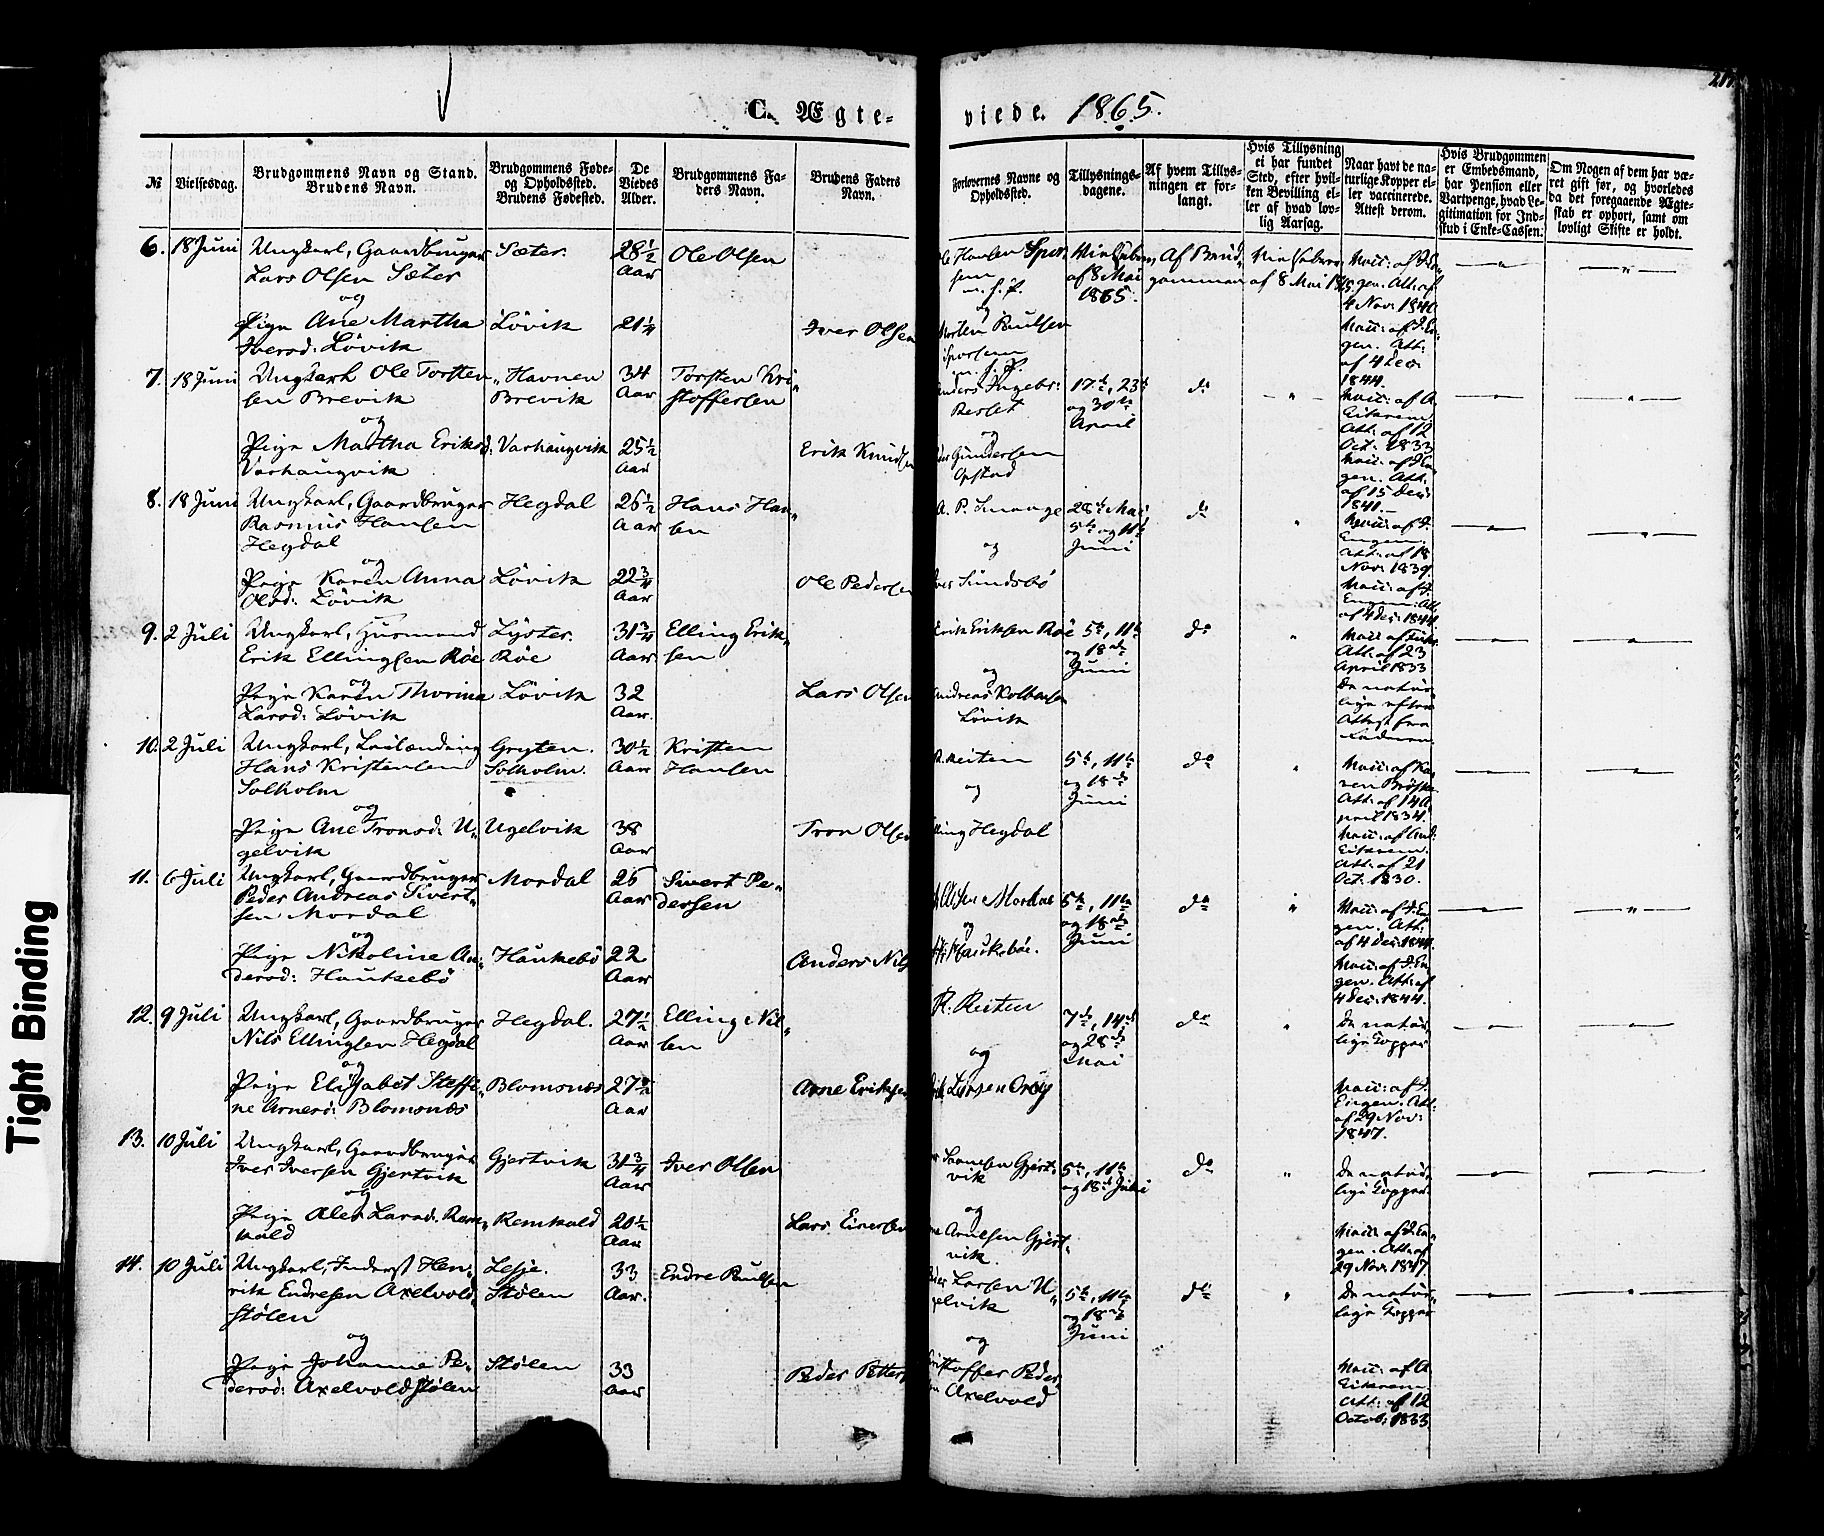 C. Ægte-viede. 1865.
№
Vielsesdag.
Brudgommens Navn og Stand.
Brudens Navn.
Brudgommens Føde-
og Opholdssted.
Brudens Fødested.
De
Viedes
Alder.
Brudgommens Fa-
ders Navn.
Brudens Faders
Navn.
Forlovernes Navne og
Opholdssted.
Tillysnings-
dagene.
Af hvem Tillys-
ningen er for-
langt.
Hvis Tillysning
ei har fundet
Sted, efter hvil-
ken Bevilling el-
ler af hvad lov-
lig Aarsag.
Naar havt de na-
turlige Kopper el-
ler vaccinerede.
Attest derom.
Hvis Brudgommen
er Embedsmand,
har Pension eller
Vartpenge, hvad Le-
gitimation for Ind-
skud i Enke-Cassen.
Om Nogen af dem har væ-
ret gift før, og hvorledes
da det foregaaende Ægte-
skab er ophørt, samt om
lovligt Skifte er holdt.
6. 18 Juni
Ungkarl, Gaardbruger
Lars Olsen Sæter
og
Pige Ane Martha
Iversd: Lövik
Sæter.
Lövik
28½
Aar
21¼
Ole Olsen
Iver Olsen
og
Morten Paulsen
af 8 Mai
1865.
Af Brud-
gommen
af 8 Mai 1865.
Vacc: af J. En-
gen. Att: af
4 Nov: 1840
Vacc: af J. En-
gen. Att:
af 4 Dec:
1844.
7. 18 Juni
Ungkarl Ole Torsten-
sen Brevik
og
Pige Martha Eriksd:
Varhaugvik
Havnen
Brevik
Varhaugvik
34
Aar
25½
Aar
Torsten Kri-
stoffersen
Erik Knudsen
og
Gundersen
Opstad
17de, 23de
og 30te
April
do
Vacc: af A.
Eikrem
Att: af 12
Oct: 1833
Vacc: af J. En-
gen. Att:
af 15 Dec:
1841.
8. 18 Juni
Ungkarl, Gaardbruger
Rasmus Hansen
Hegdal
og
Pige Karen Anna
Olsd: Lövik
Hegdal
Lövik
26½
Aar
22¾
Aar
Hans Han-
sen
Ole Pedersen
og
Iver Sundsbö
28de Mai
5te og 11te
Juni
do
Vacc: af J.
Engen.
Att: af 18
Nov: 1839.
Vacc: af J.
Engen: Att:
af 4 Dec: 1844.
9. 2 Juli
Ungkarl, Husmand
Erik Ellingsen Röe
og
Pige Karen Thorina
Larsd: Lövik
Lyster.
Röe
Lövik
31¾
Aar
32
Aar.
Elling Erik-
sen
Lars Olsen
Erik Eriksen Röe
og
Andreas Kolbensen
Lövik
5te, 11te
og 18de
Juni
do
Att: af 23
April 1833
De natur-
lige efter
Attest fra
10. 2 Juli
Ungkarl, Leilænding
Hans Kristensen
Solholm
og
Pige Ane Tronsd: U-
gelvik
Gryten.
Solholm.
Ugelvik
30½
Aar
38
Aar
Kristen
Hansen
Tron Olsen
R. Reiten
og
Elling Hegdal
5te, 11te
og 18de
Juni
do
Att: af 14 A-
pril 1834.
Vacc: af And.
Eikrem.
Att: af 21
Oct: 1830.
11. 6 Juli
Ungkarl, Gaardbruger
Peder Andreas Sivert-
sen Mordal
og
Pige Nikoline An-
dersd: Haukebö
Mordal
Haukebö
25
Aar
22
Aar
Sivert Pe-
dersen
Anders Nils
og
Haukeböe.
5te, 11te
og 18de
Juni
do
Vacc: af J. En-
gen. Att:
af 4 Dec: 1844.
Vacc: af J. En-
gen. Att: af
4 Dec: 1844.
12. 9 Juli
Ungkarl, Gaardbruger
Nils Ellingsen Hegdal
og
Pige Elisabet Steffe-
ne Arnesd: Blomsnæs
Hegdal.
Blomsnæs
27½
Aar
27¾
Aar
Elling Nil-
sen
Arne Eriksen
R. Reiten
og
Larsen Oröy
7de, 14de
og 28de
Mai
do
De natur-
lige Kopper
Vacc: af J.
Engen. Att:
af 29 Nov:
1847.
13. 10 Juli
Ungkarl, Gaardbruger
Iver Iversen Gjertvik
og
Pige Ales Larsd: Rem-
vold
Gjertvik
Remkold
31¾
Aar
20½
Aar
Iver Olsen
Lars Einersen
Gjert-
vik
og
Arnesen Gjert-
vik
5te, 11te
og 18de Juni
do
De natur-
lige Kopper
Vacc: af J. En-
gen. Att: af
29 Nov: 1847.
14. 10 Juli
Ungkarl, Inderst Hen-
rik Endresen Axelvold-
stölen
og
Pige Johanne Pe-
dersd: Axelvoldstölen
Lesje.
Stölen
Stölen
33
Aar.
33
Aar
Endre Paulsen
Peder Petters
Peder Larsen U-
gelvik
og
Kristoffer Peder
Axelvold
5te, 11te
og 18de
Juni
do
De natur-
lige Kopper
Vacc: af A
Eikrem
Att: af 12
Octob: 1833
Tight Binding